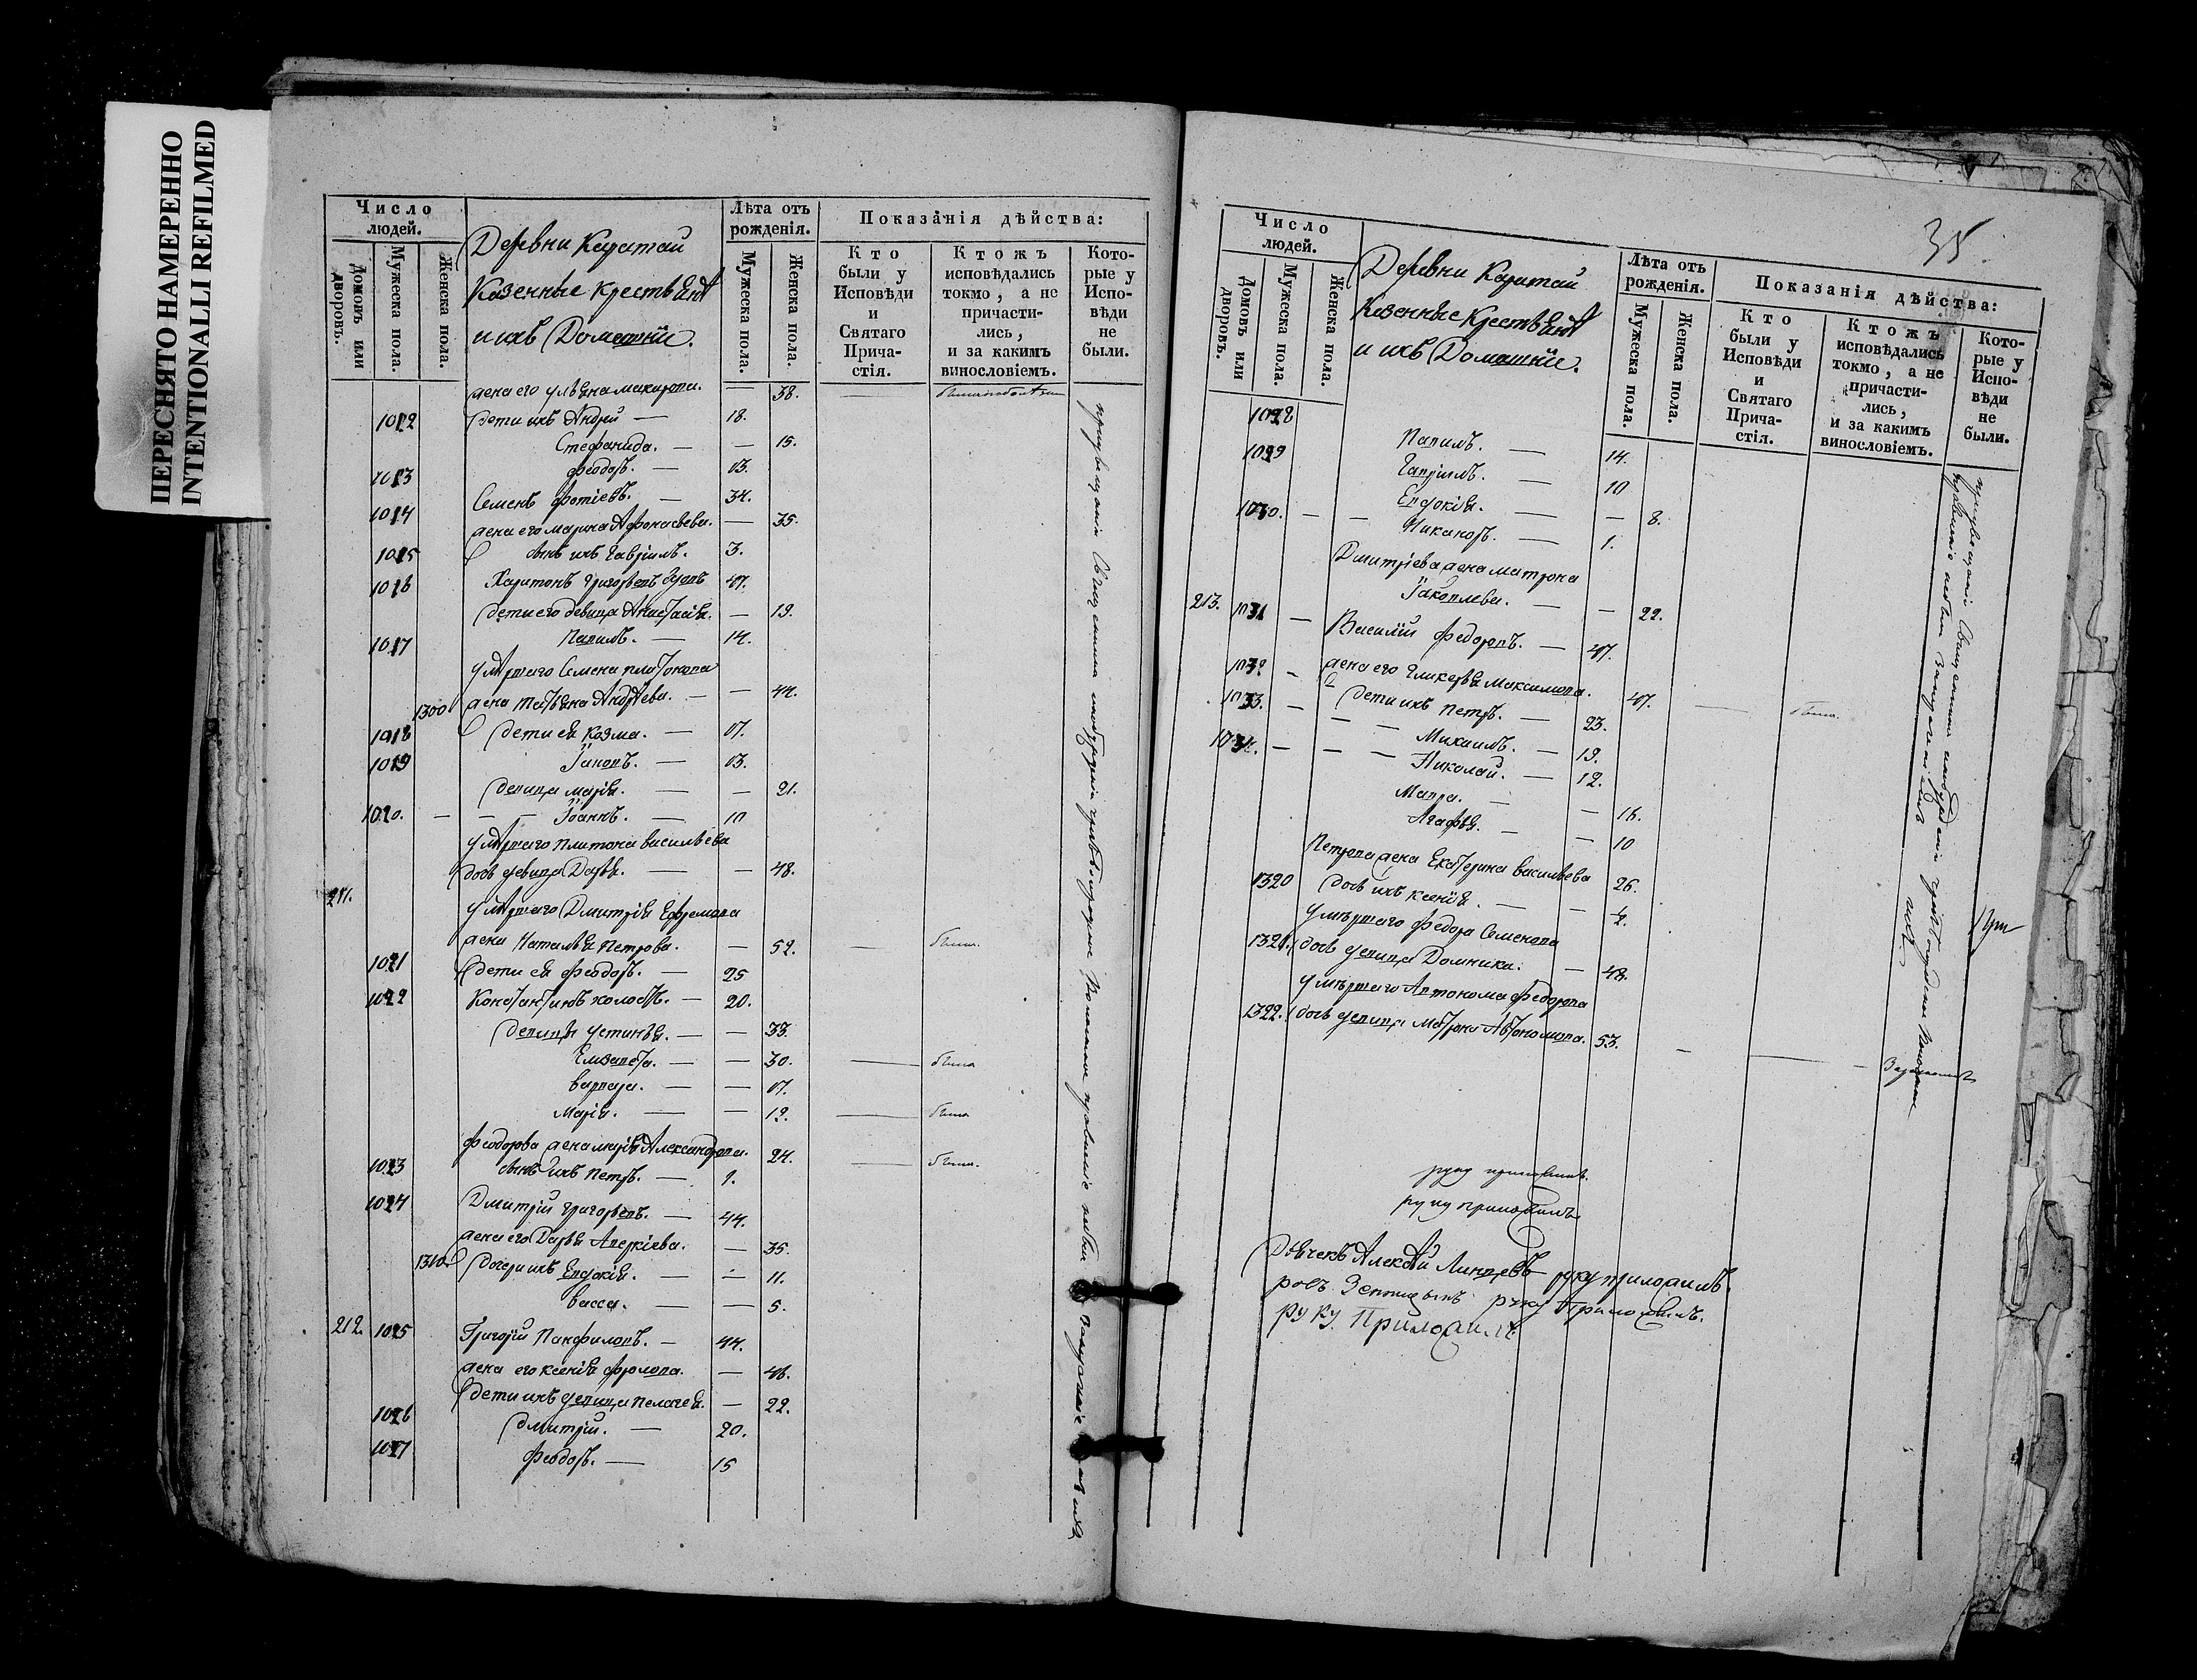 ПЕРЕСНЯТО НАМЕРЕННО
INTENTIONALLI REFILMED
Число людей.
Домовъ или дворовъ.
Мужеска пола.
Женска пола.
Деревни Каратаи
Казенные крестьяне
и ихъ Домашніе.
Лѣта отъ рожденія.
Мужеска пола.
Женска пола.
Показанія дѣйства:
Кто были у Исповѣди и Святаго Причастія.
Ктожъ исповѣдались токмо, а не причастились, и за какимъ винословіемъ.
Которые у Исповѣди не были.
жена его Ульяна макарова. — 38.
1012 дети ихъ Андрей — 18.
Стефанида. — — 15.
1013 Феодоръ. — 13.
1014 Семенъ Фотіевъ. — 34.
жена его марина Афонасьева. — 35.
1015 сынъ ихъ Гавріилъ. 3.
1016 Харитонъ Григорьевъ 47.
дети его девица Анастасія. — 19.
1017 Павилъ. — 14.
умершаго Семена платонова
1300 жена татьяна Андреева. — — 44.
1018 дети ея Козма. — 17.
1019 Іаковъ. — 13.
девица марія. — — 21.
1020. — — — Іоаннъ. — 10
умершаго платона васильева
дочь девица Дарья. — — 48.
211. умершаго Дмитрія Ефремова
жена Наталья Петрова. — 52. — была.
1021 дети ея Феодоръ. — 25
1022 Константинъ холостъ. — 20.
девицы устинья. — — 33.
Елизавета. — — 30. — была
варвара. — — 17.
Марія. — — 12. — была
Феодорова жена марія Александрова. 24. — была.
1023 сынъ ихъ Петръ. — 1.
1024 Дмитрій Григорьевъ. — 44.
жена его Дарья Аверкіева. — 35.
1310 дочери ихъ Евдокія. — — 11.
васса. — — 5.
212. 1025 Григорій Панфиловъ. — 44.
жена его ксенія Фролова. — 46.
дети ихъ девица пелагея. — 22.
1026 Дмитрій. — 20.
1027 Феодоръ. — 15
35.
Число людей.
Домовъ или дворовъ.
Мужеска пола.
Женска пола.
Деревни Каратаи
Казенные крестьяне
и ихъ Домашніе.
Лѣта отъ рожденія.
Мужеска пола.
Женска пола.
Показанія дѣйства:
Кто были у Исповѣди и Святаго Причастія.
Ктожъ исповѣдались токмо, а не причастились, и за какимъ винословіемъ.
Которые у Исповѣди не были.
1028 Павилъ. — 14.
1029 Гавріилъ. — 10
Евдокія. — — 8.
1030. — — Никаноръ. — 1.
Дмитріева жена матрона
Іаковлева. — — 22.
213. 1031 — Василій Федоровъ. — 47.
жена его Гликерья Максимова. 47. — была.
1032 — дети ихъ петръ. — 23.
1033. — — — Михаилъ. — 19.
1034. — — — Николай. — 12.
Мавра. — — 16.
Агафья. — — 10
Петрова жена Екатерина васильева 26.
1320 дочь ихъ ксенія. — — 4.
умершаго Федора Семенова
1321. дочь девица Домника. — 48.
умершаго Автонома Федорова
1322. дочь девица Матрона Автономова. 53.
руку приложилъ.
руку приложилъ
Дьячекъ Алексѣй руку приложилъ.
руку Приложилъ.
руку Приложилъ